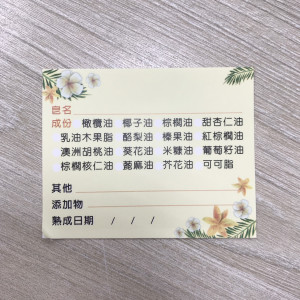 皂名
成份 橄欖油 椰子油 棕櫚油 甜杏仁油
乳油木果脂 酪梨油 榛果油 紅棕櫚油
澳洲胡桃油 葵花油 米糠油 葡萄籽油
棕櫚核仁油 蓖麻油 芥花油 可可脂
其他
添加物
熟成日期 / / /